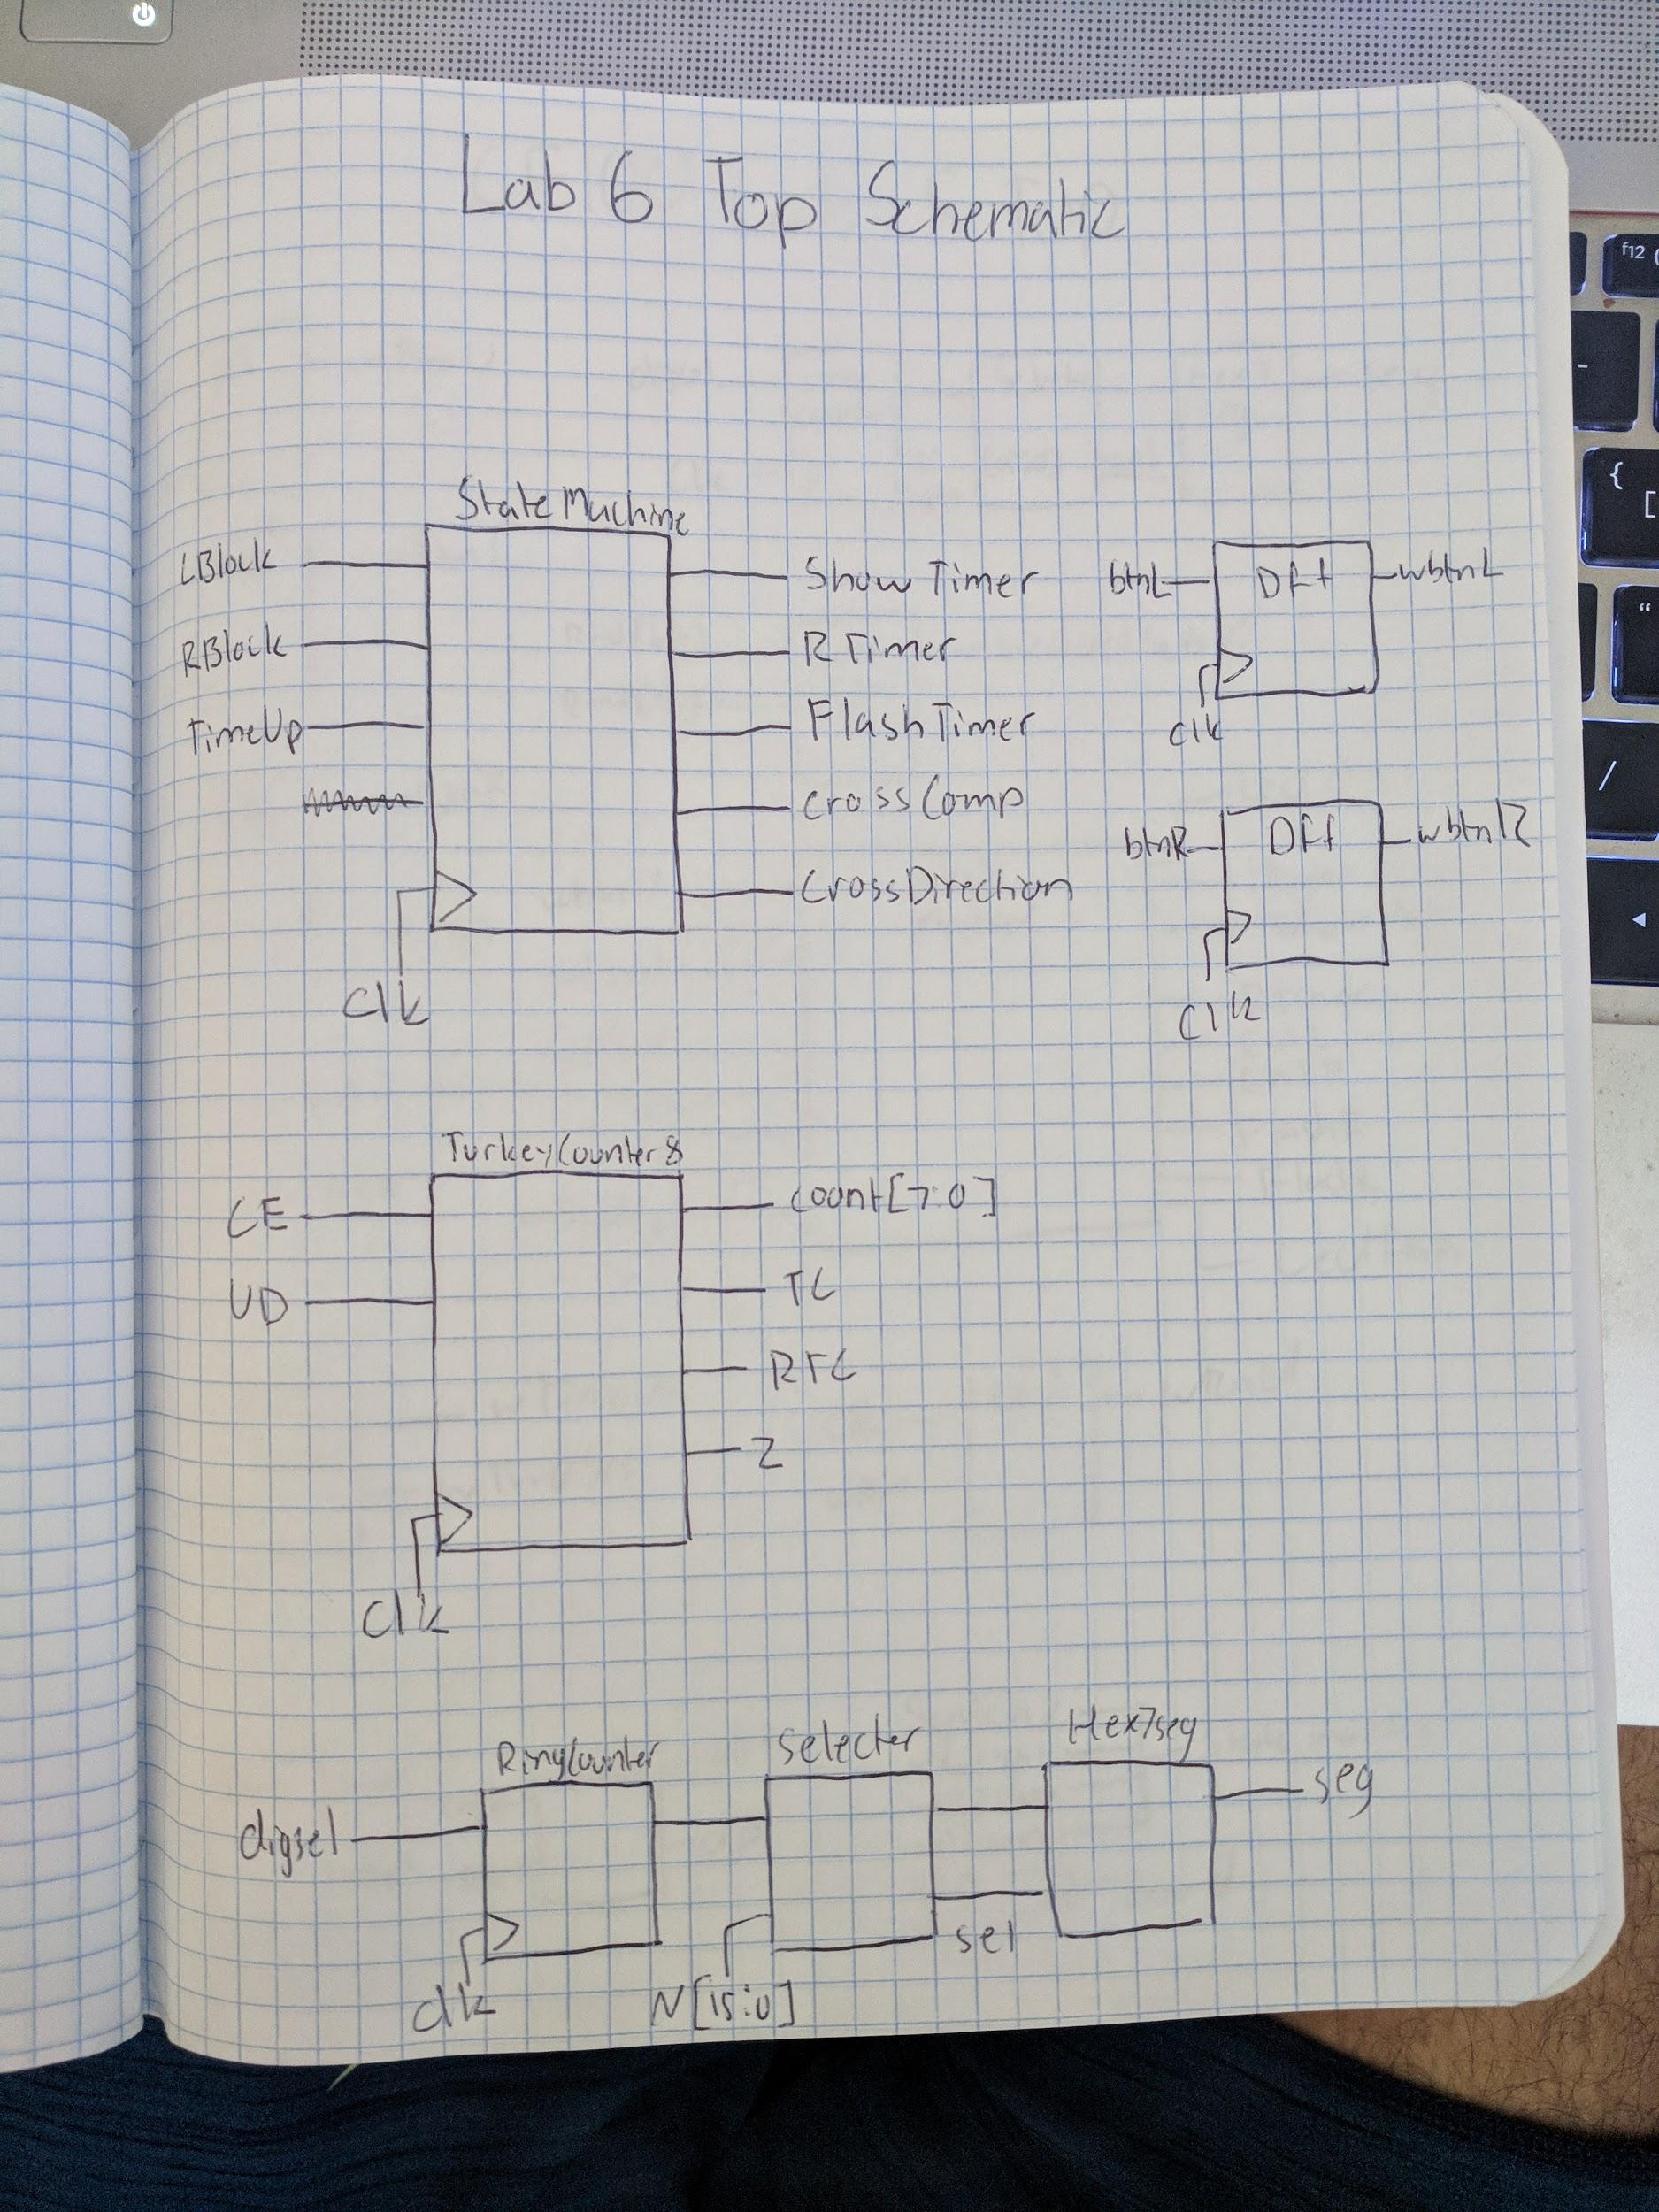 Lab 6 Top Schematic
StateMachine
LBlock
RBlock
TimeUp
Clk
ShowTimer
RTimer
FlashTimer
CrossComp
CrossDirection
btnL
Dff
wbtnL
clk
btnR
Dff
wbtnR
clk
TurkeyCounter8
CE
UD
Clk
count[7:0]
TC
RTC
Z
RingCounter
digsel
clk
selecter
N[15:0]
sel
Hex7seg
seg
f12
-
{
[
“
/